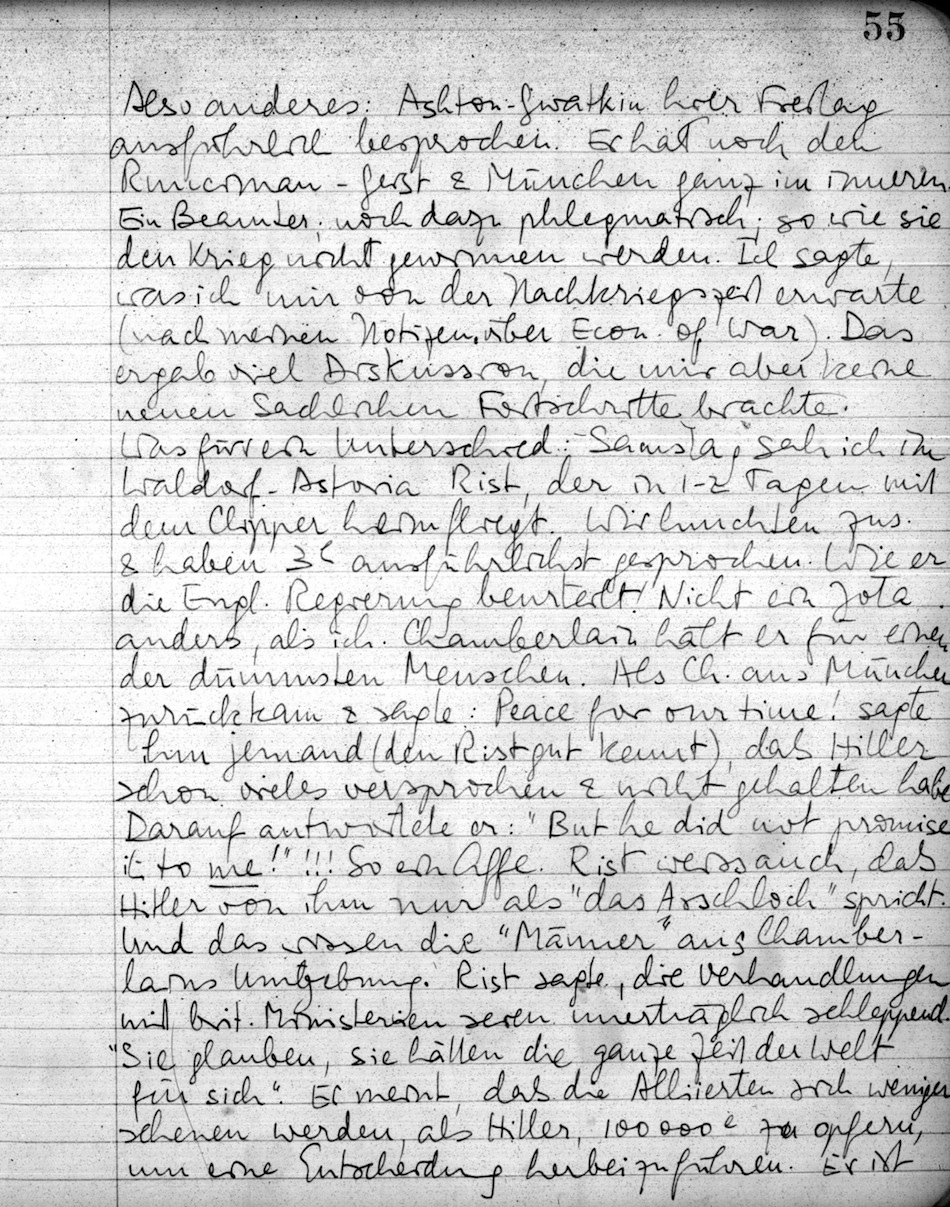 55
Also anderes: Ashton-Gwatkin hier Freitag
ausführlich besprochen. Er hat noch den
Runciman-Geist & München ganz im inneren.
Ein Beamter, noch dazu phlegmatisch; so wie sie
den Krieg nicht gewinnen werden. Ich sagte,
was ich mir von der Nachkriegszeit erwarte
(nach meinen Notizen über Econ. of War). Das
ergab viel Diskussion, die mir aber keine
neuen Sachlichen Fortschritte brachte.
Was für ein Unterschied: Samstag sah ich im
Waldorf-Astoria Rist, der in 1-2 Tagen mit
dem Clipper heimfliegt. Wir lunchten zus.
& haben 3h ausführlichst gesprochen. Wie er
die Engl. Regierung beurteilt! Nicht ein Jota
anders, als ich. Chamberlain hält er für einen
der dümmsten Menschen. Als Ch. aus München
zurückkam & sagte: Peace for our time! sagte
ihm jemand (den Rist gut kennt), dass Hitler
schon vieles versprochen & nicht gehalten habe
Darauf antwortete er: "But he did not promise
it to me!" !!! So ein Affe. Rist weiss auch, dass
Hitler von ihm nur als "das Arschloch" spricht.
Und das wissen die "Männer" aus Chamber-
lains Umgebung. Rist sagte, die Verhandlungen
mit brit. Ministerien seien unerträglich schleppend.
"Sie glauben, sie hätten die ganze Zeit der Welt
für sich". Er meint, dass die Alliierten sich weniger
scheuen werden, als Hitler, 100000e zu opfern,
um eine Entscheidung herbeizuführen. Er ist